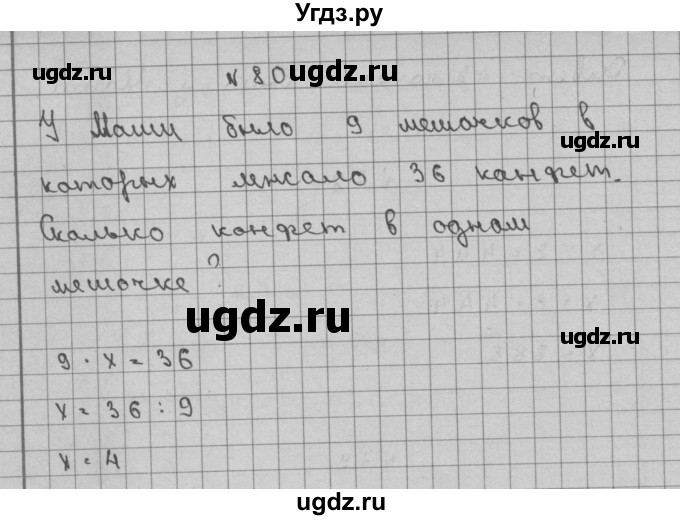 Угдз.ру
ugdz.ru ugdz.ru
N 80
У Маши было 9 мешочков в
ugdz.ru
которых лежало 36 канфет.
Сколько конфет в однам
мешочке?
ugdz.ru ugdz.ru
9 · x = 36
x = 36 : 9
x = 4
ugdz.ru